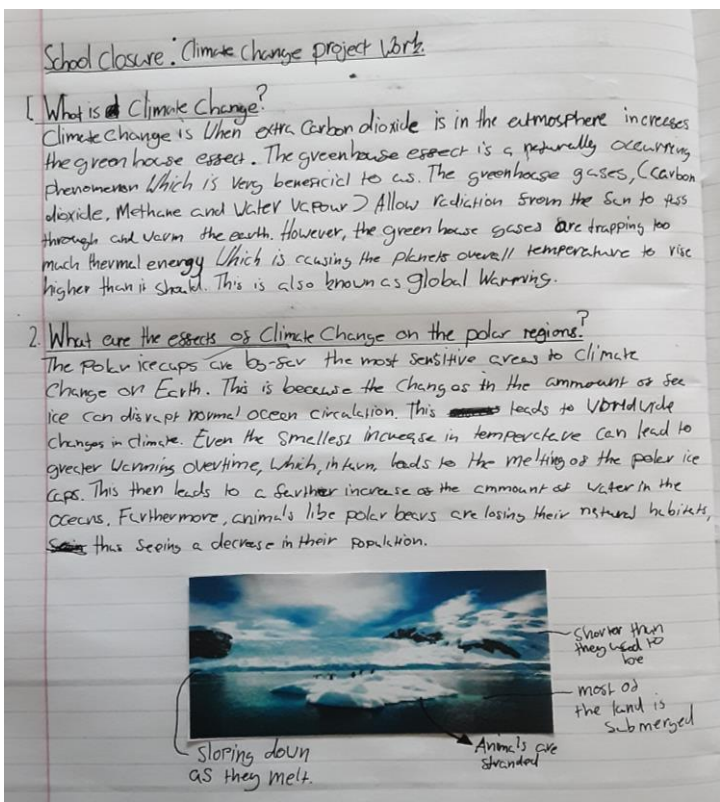 School closure : Climate Change project Work.
1 What is Climate Change?
Climate Change is When extra Carbon dioxide is in the eatmosphere increases
the green house effect. The greenhouse effect is a naturally occurring
phenomenon Which is very beneficial to us. The greenhouse gases, (carbon
dioxide, Methane and Water Vapour) Allow radiation from the Sun to pass
through and warm the earth. However, the green house gases are trapping too
much thermal energy Which is causing the planets overall temperature to rise
higher than it should. This is also known as global Warming.
2. What are the effects of Climate Change on the polar regions?
The Polar icecaps are by-far the most sensitive areas to Climate
Change on Earth. This is because the changes in the ammount of sea
ice can disrupt normal ocean circulation. This leads to Worldwide
changes in climate. Even the smallest increase in temperature can lead to
greater warming overtime, which, in turn, leads to the melting of the polar ice
caps. This then leads to a further increase of the ammount of water in the
oceans. Furthermore, animals like polar bears are losing their natural habitats,
thus seeing a decrease in their population.
Shorter than
they used to
be
most of
the land is
submerged
Animals are
stranded
Sloping down
as they melt.